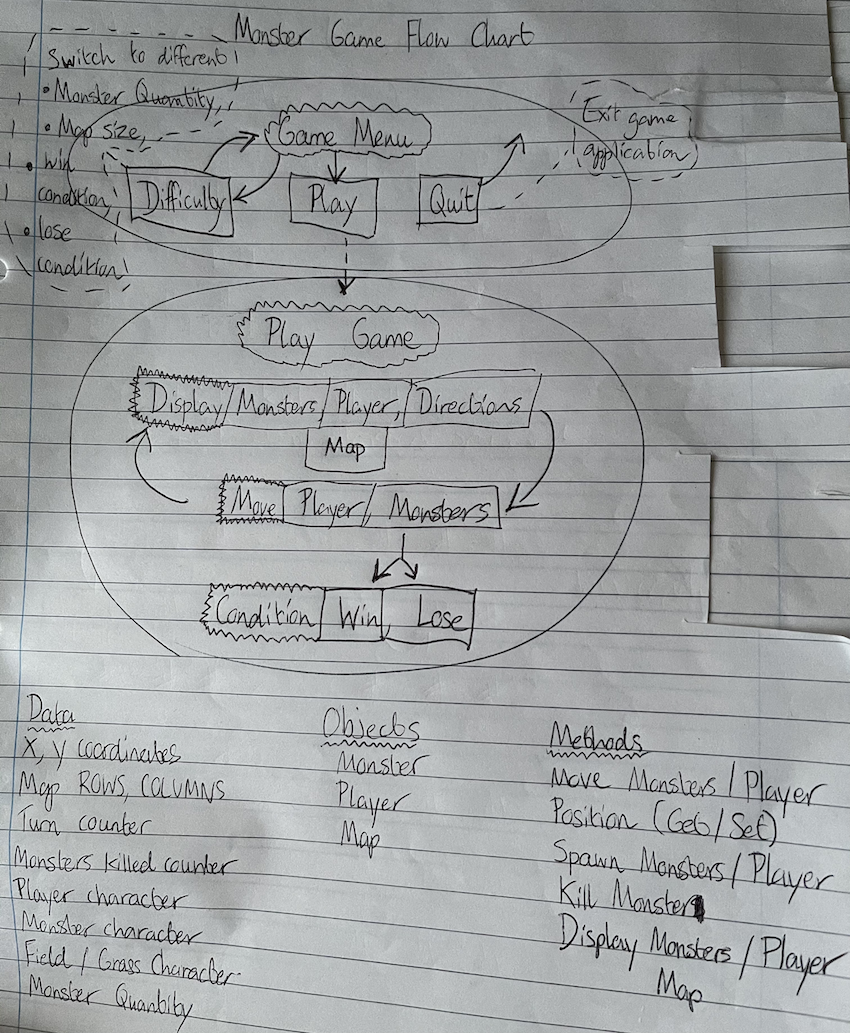 Monster Game Flow Chart
Switch to different
• Monster Quantity,
• Map size,
• win
condition,
• lose
condition
Game Menu
Exit game
application
Difficulty
Play
Quit
Play Game
Display/Monsters/Player, Directions
Map
Move Player/ Monsters
Condition Win, Lose
Data
X, Y coordinates
Map ROWS, COLUMNS
Turn counter
Monsters killed counter
Player character
Monster character
Field / Grass Character
Monster Quantity
Objects
Monster
Player
Map
Methods
Move Monsters / Player
Position (Get / Set)
Spawn Monsters / Player
Kill Monster
Display Monsters / Player
Map